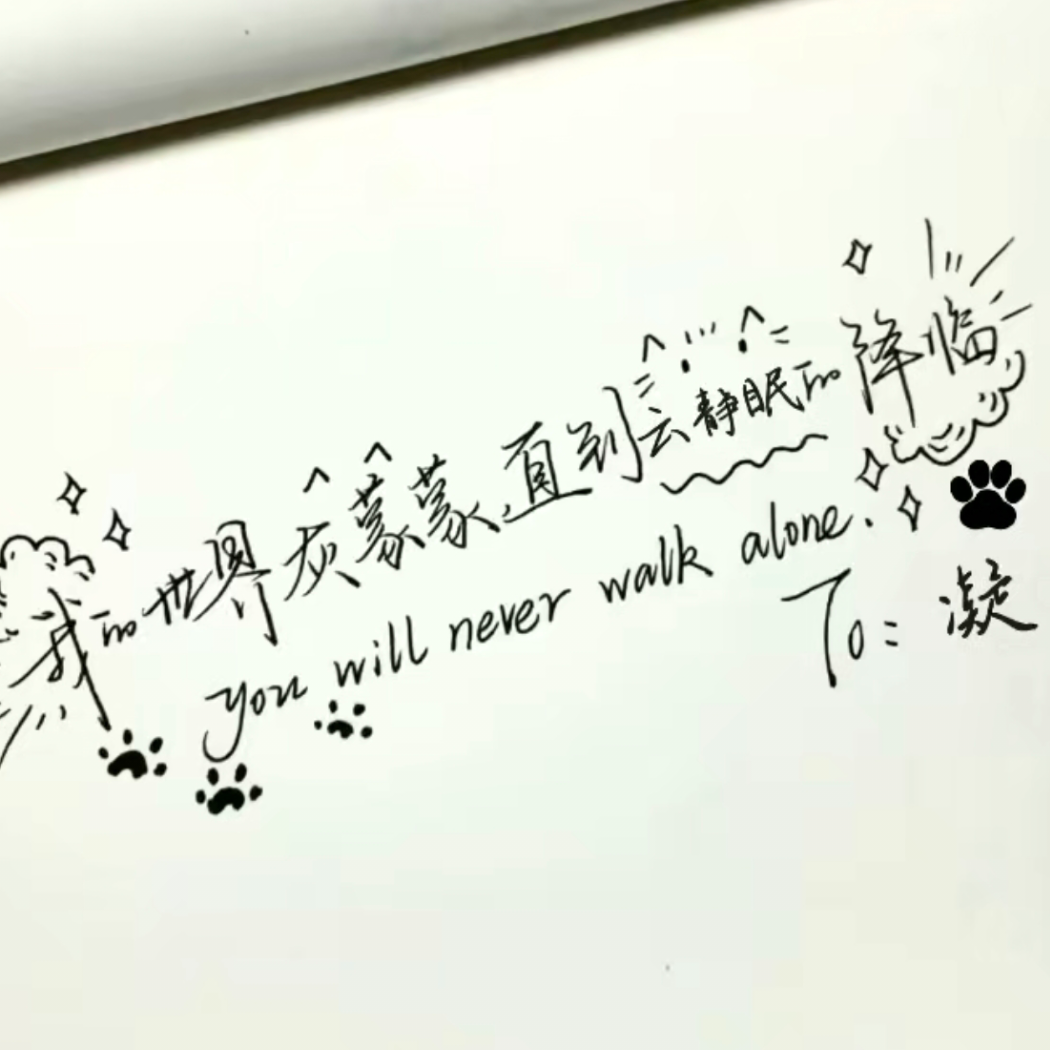 我的世界灰蒙蒙,直到云静眠的降临
you will never walk alone.
To: 凝